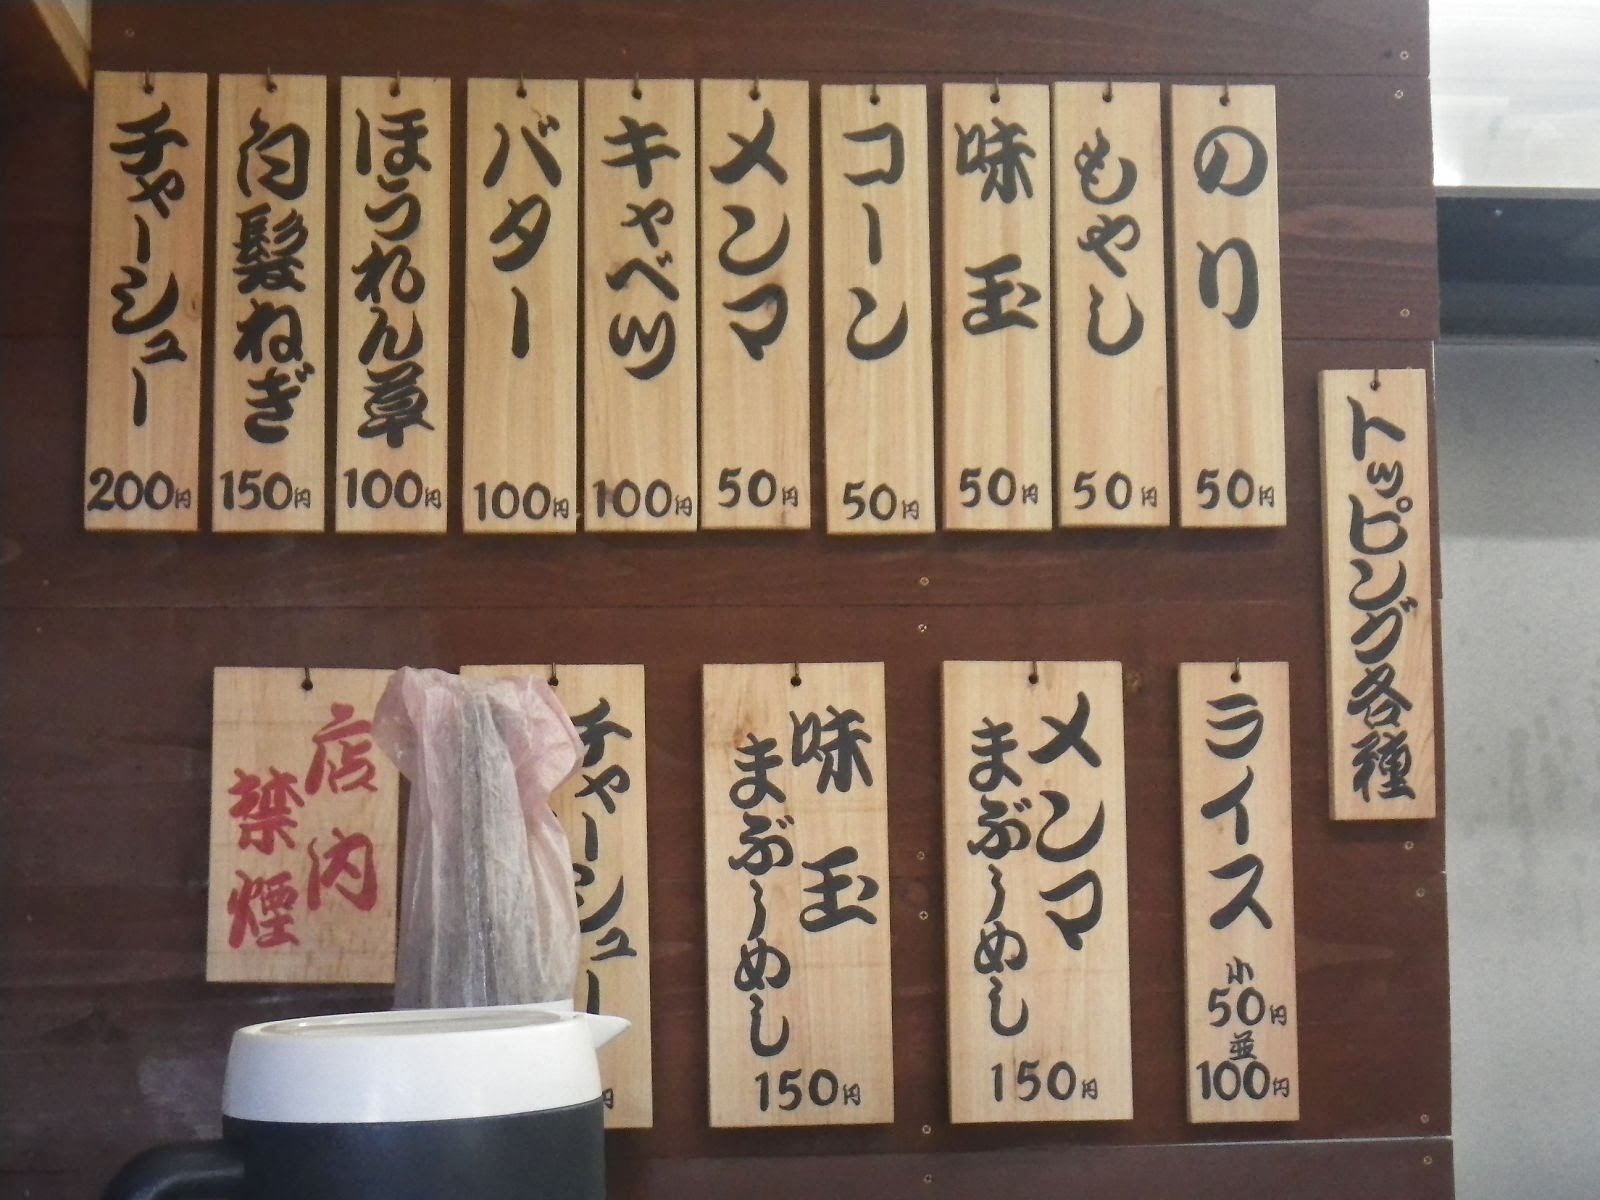 トッピング各種
のり
50円
もやし
50円
味玉
50円
コーン
50円
メンマ
50円
キャベツ
100円
バター
100円
ほうれん草
100円
白髪ねぎ
150円
チャーシュー
200円
ライス
小
50円
並
100円
メンマ
まぶ〜めし
150円
味玉
まぶ〜めし
150円
チャーシュー
円
店内
禁煙